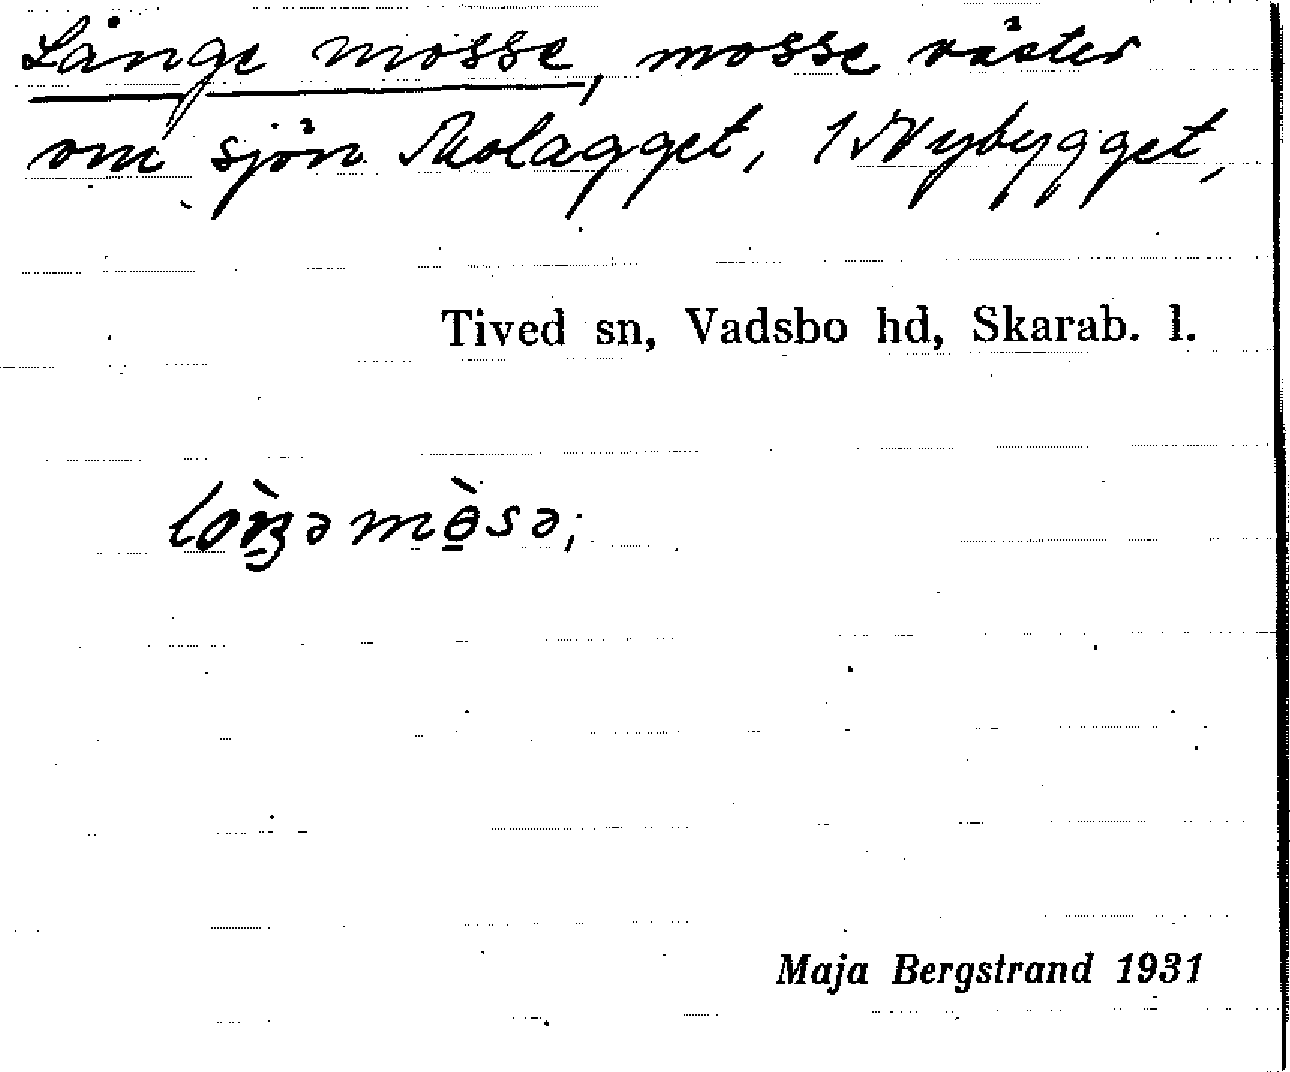 Långe mosse, mosse väster
om sjön Skolagget, 1 Nybygget,
Tived sn, Vadsbo hd, Skarab. l.
Maja Bergstrand 1931